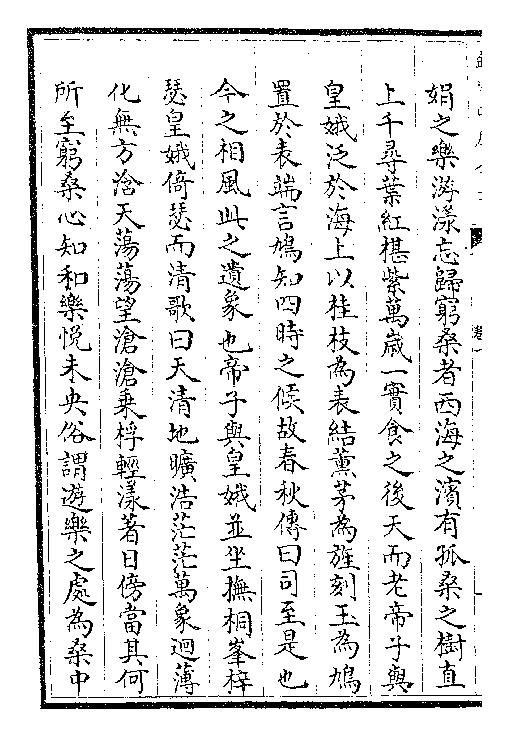 娟之樂游漾忘歸窮桑者西海之濱有孤桑之樹直
上千尋葉紅椹紫萬歲一實食之後天而老帝子與
皇娥泛於海上以桂枝為表結薰茅為旌刻玉為鳩
置於表端言鳩知四時之候故春秋傳曰司至是也
今之相風此之遺象也帝子與皇娥並坐撫桐峯梓
瑟皇娥倚瑟而清歌曰天清地曠浩茫茫萬象迴薄
化無方浛天蕩蕩望滄滄乗桴輕漾著日傍當其何
所至窮桑心知和樂悅未央俗謂遊樂之處為桑中